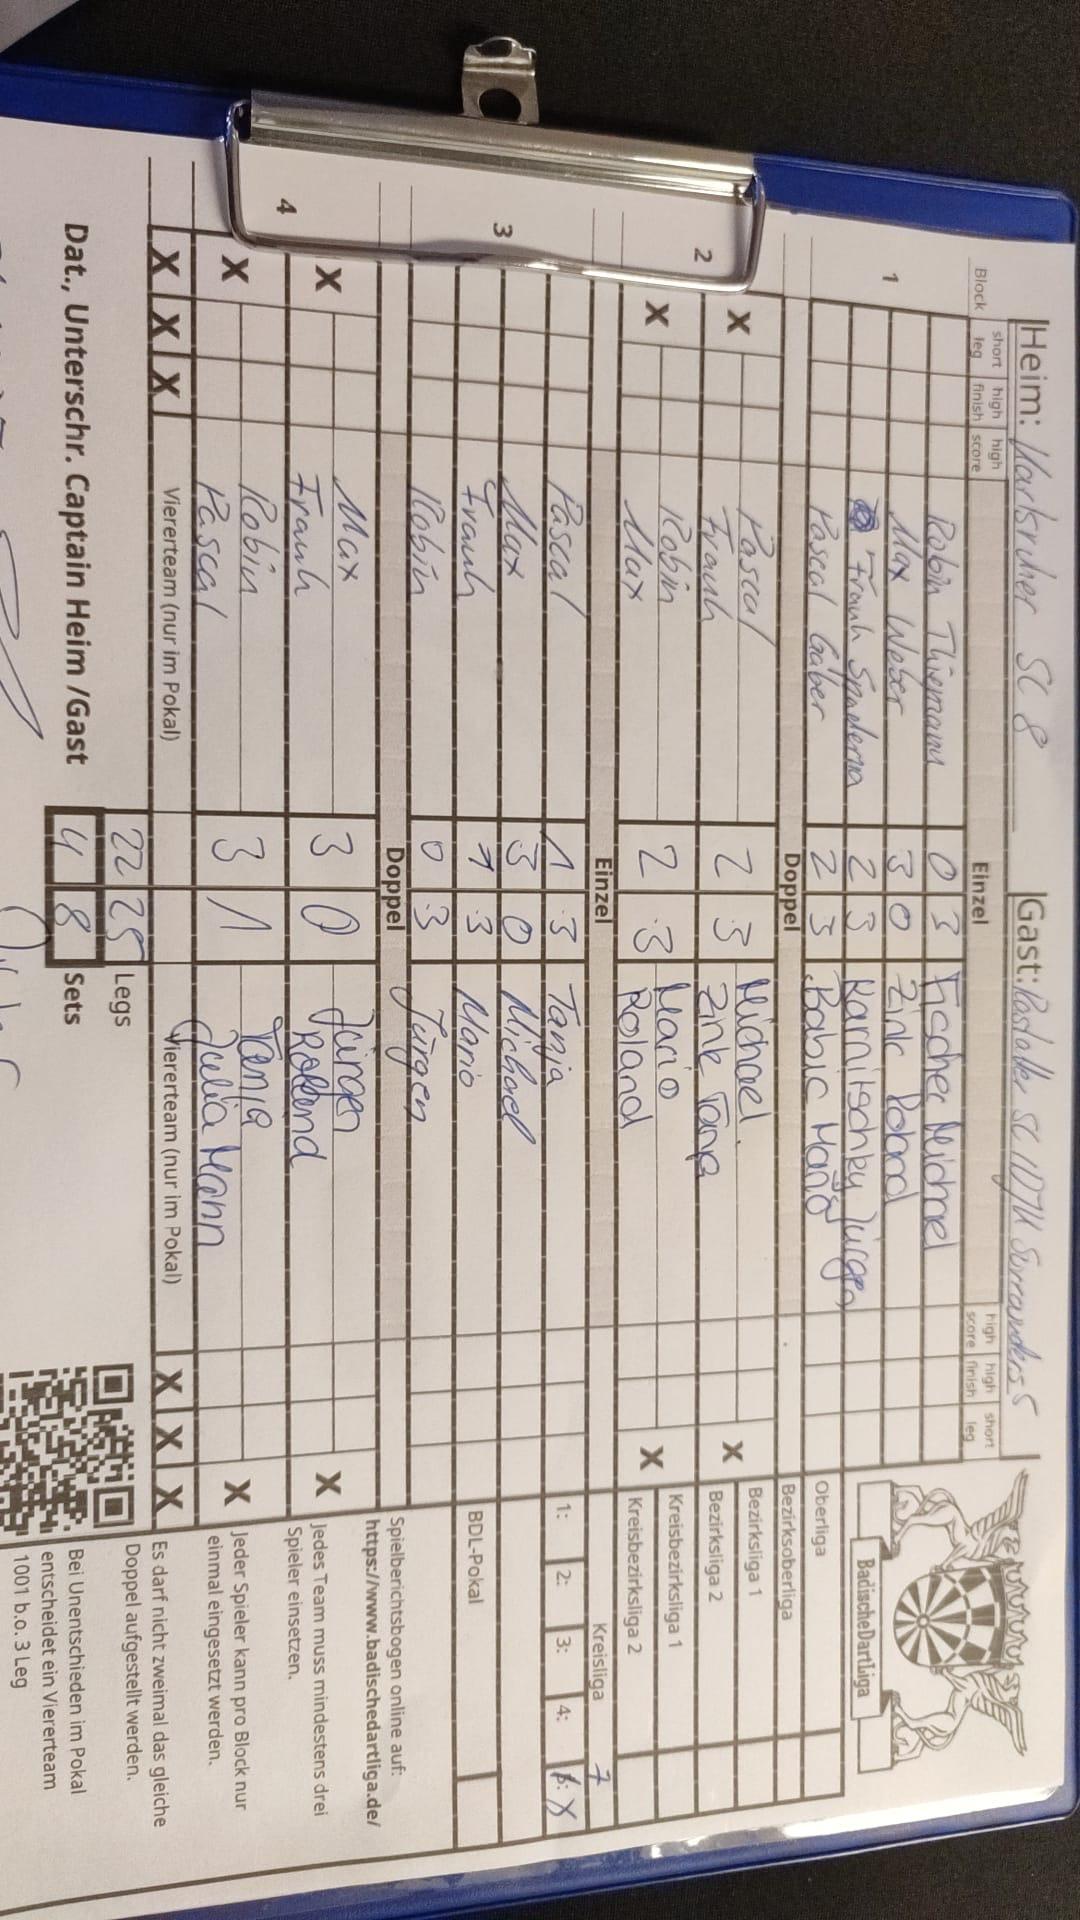 Heim: Karlsruher SC 8 Gast: Rastatter SC DJK Surrounders 5
Block short leg high finish high score Einzel high score high finish short leg
1 Robin Thiemann 0 3 Fischer Michael
Max Weber 3 0 Zink Roland
Frank 2 3 Jürgen
Pascal Gaber 2 3 Babic Mario
Doppel
2 X Pascal 2 3 Michael X
Frank Zink Tanja
X Robin 2 :3 Mario X
Max Roland
Einzel
3 Pascal 1 :3 Tanja
Max 3 0 Michael
Frank 1 :3 Mario
Robin 0 :3 Jürgen
Doppel
4 X Max 3 0 Jürgen X
Frank Roland
X Robin 3 1 Tanja X
Pascal Julia Mann
X X X Vierertteam (nur im Pokal) Viererteam (nur im Pokal) X X X
22 25 Legs
Dat., Unterschr. Captain Heim /Gast 4 8 Sets
BadischeDartLiga
Oberliga
Bezirksoberliga
Bezirksliga 1
Bezirksliga 2
Kreisbezirksliga 1
Kreisbezirksliga 2
Kreisliga 7
1: 2: 3: 4: X
BDL-Pokal
Spielberichtsbogen online auf:
https://www.badischedartliga.de/
Jedes Team muss mindestens drei
Spieler einsetzen.
Jeder Spieler kann pro Block nur
einmal eingesetzt werden.
Es darf nicht zweimal das gleiche
Doppel aufgestellt werden.
Bei Unentschieden im Pokal
entscheidet ein Viererteam
1001 b.o. 3 Leg